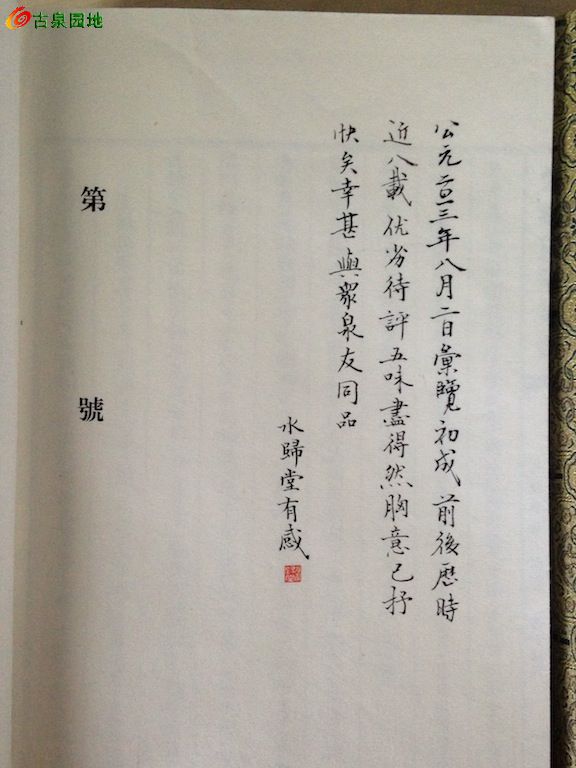 古泉园地
公元二〇一三年八月二日彙覽初成前後歷時
近八載优劣待評五味盡得然胸意已抒
快矣幸甚與眾泉友同品
水歸堂有感
第號